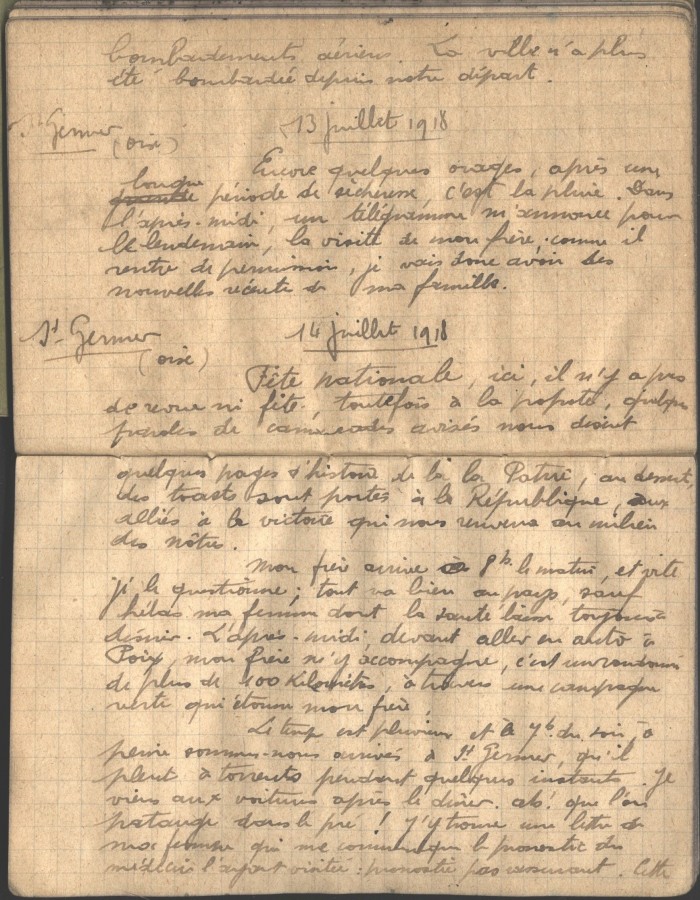 bombardements aériens. La ville n'a plus
été bombardée depuis notre départ.
St Germer 13 juillet 1918
(oise)
Encore quelques orages, après une
longue
période de sécheresse, c'est la pluie. Dans
l'après-midi, un télégramme m'annonce pour
le lendemain, la visite de mon frère, comme il
rentre de permission, je vais donc avoir des
nouvelles récente de ma famille.
St Germer 14 juillet 1918
(oise)
Fête nationale, ici, il n'y a pas
de revue ni fête, toutefois à la popote, quelques
paroles de camarades avisés nous disent
quelques pages d'histoire de la Patrie, au dessert,
des toasts sont portés à la République, aux
alliés à la victoire qui nous ramènera au milieu
des nôtres.
Mon frère arrive à 8h. le matin, et vite
je le questionne ; tout va bien au pays, sauf
hélas ma femme dont la santé laisse toujours à
désirer. L'après-midi, devant aller en auto à
Poix, mon frère m'y accompagne, c'est une randonnée
de plus de 100 Kilomètres, à travers une campagne
verte qui étonne mon frère.
Le temps est pluvieux et à 7h. du soir, à
peine sommes-nous arrivés à St Germer, qu'il
pleut à torrents pendant quelques instants. Je
viens aux voitures après le dîner. ah! que l'on
patauge dans le pré ! J'y trouve une lettre de
ma femme qui me communique le pronostic des
médecins l'ayant visitée : pronostic pas rassurant. Cette